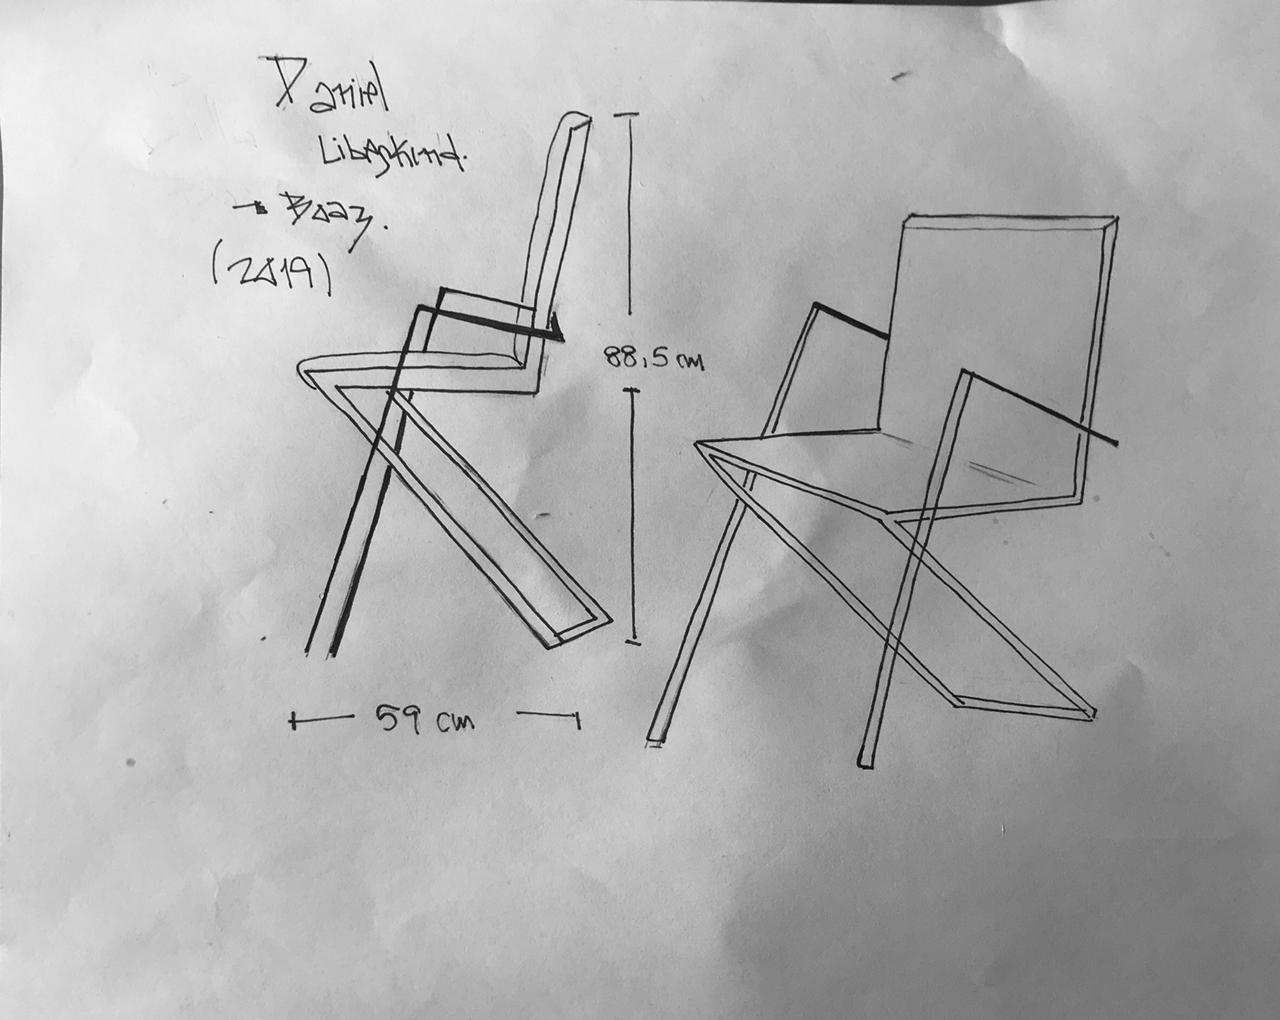 Daniel
Libeskind.
→ Boaz.
(2019)
88,5 cm
59 cm